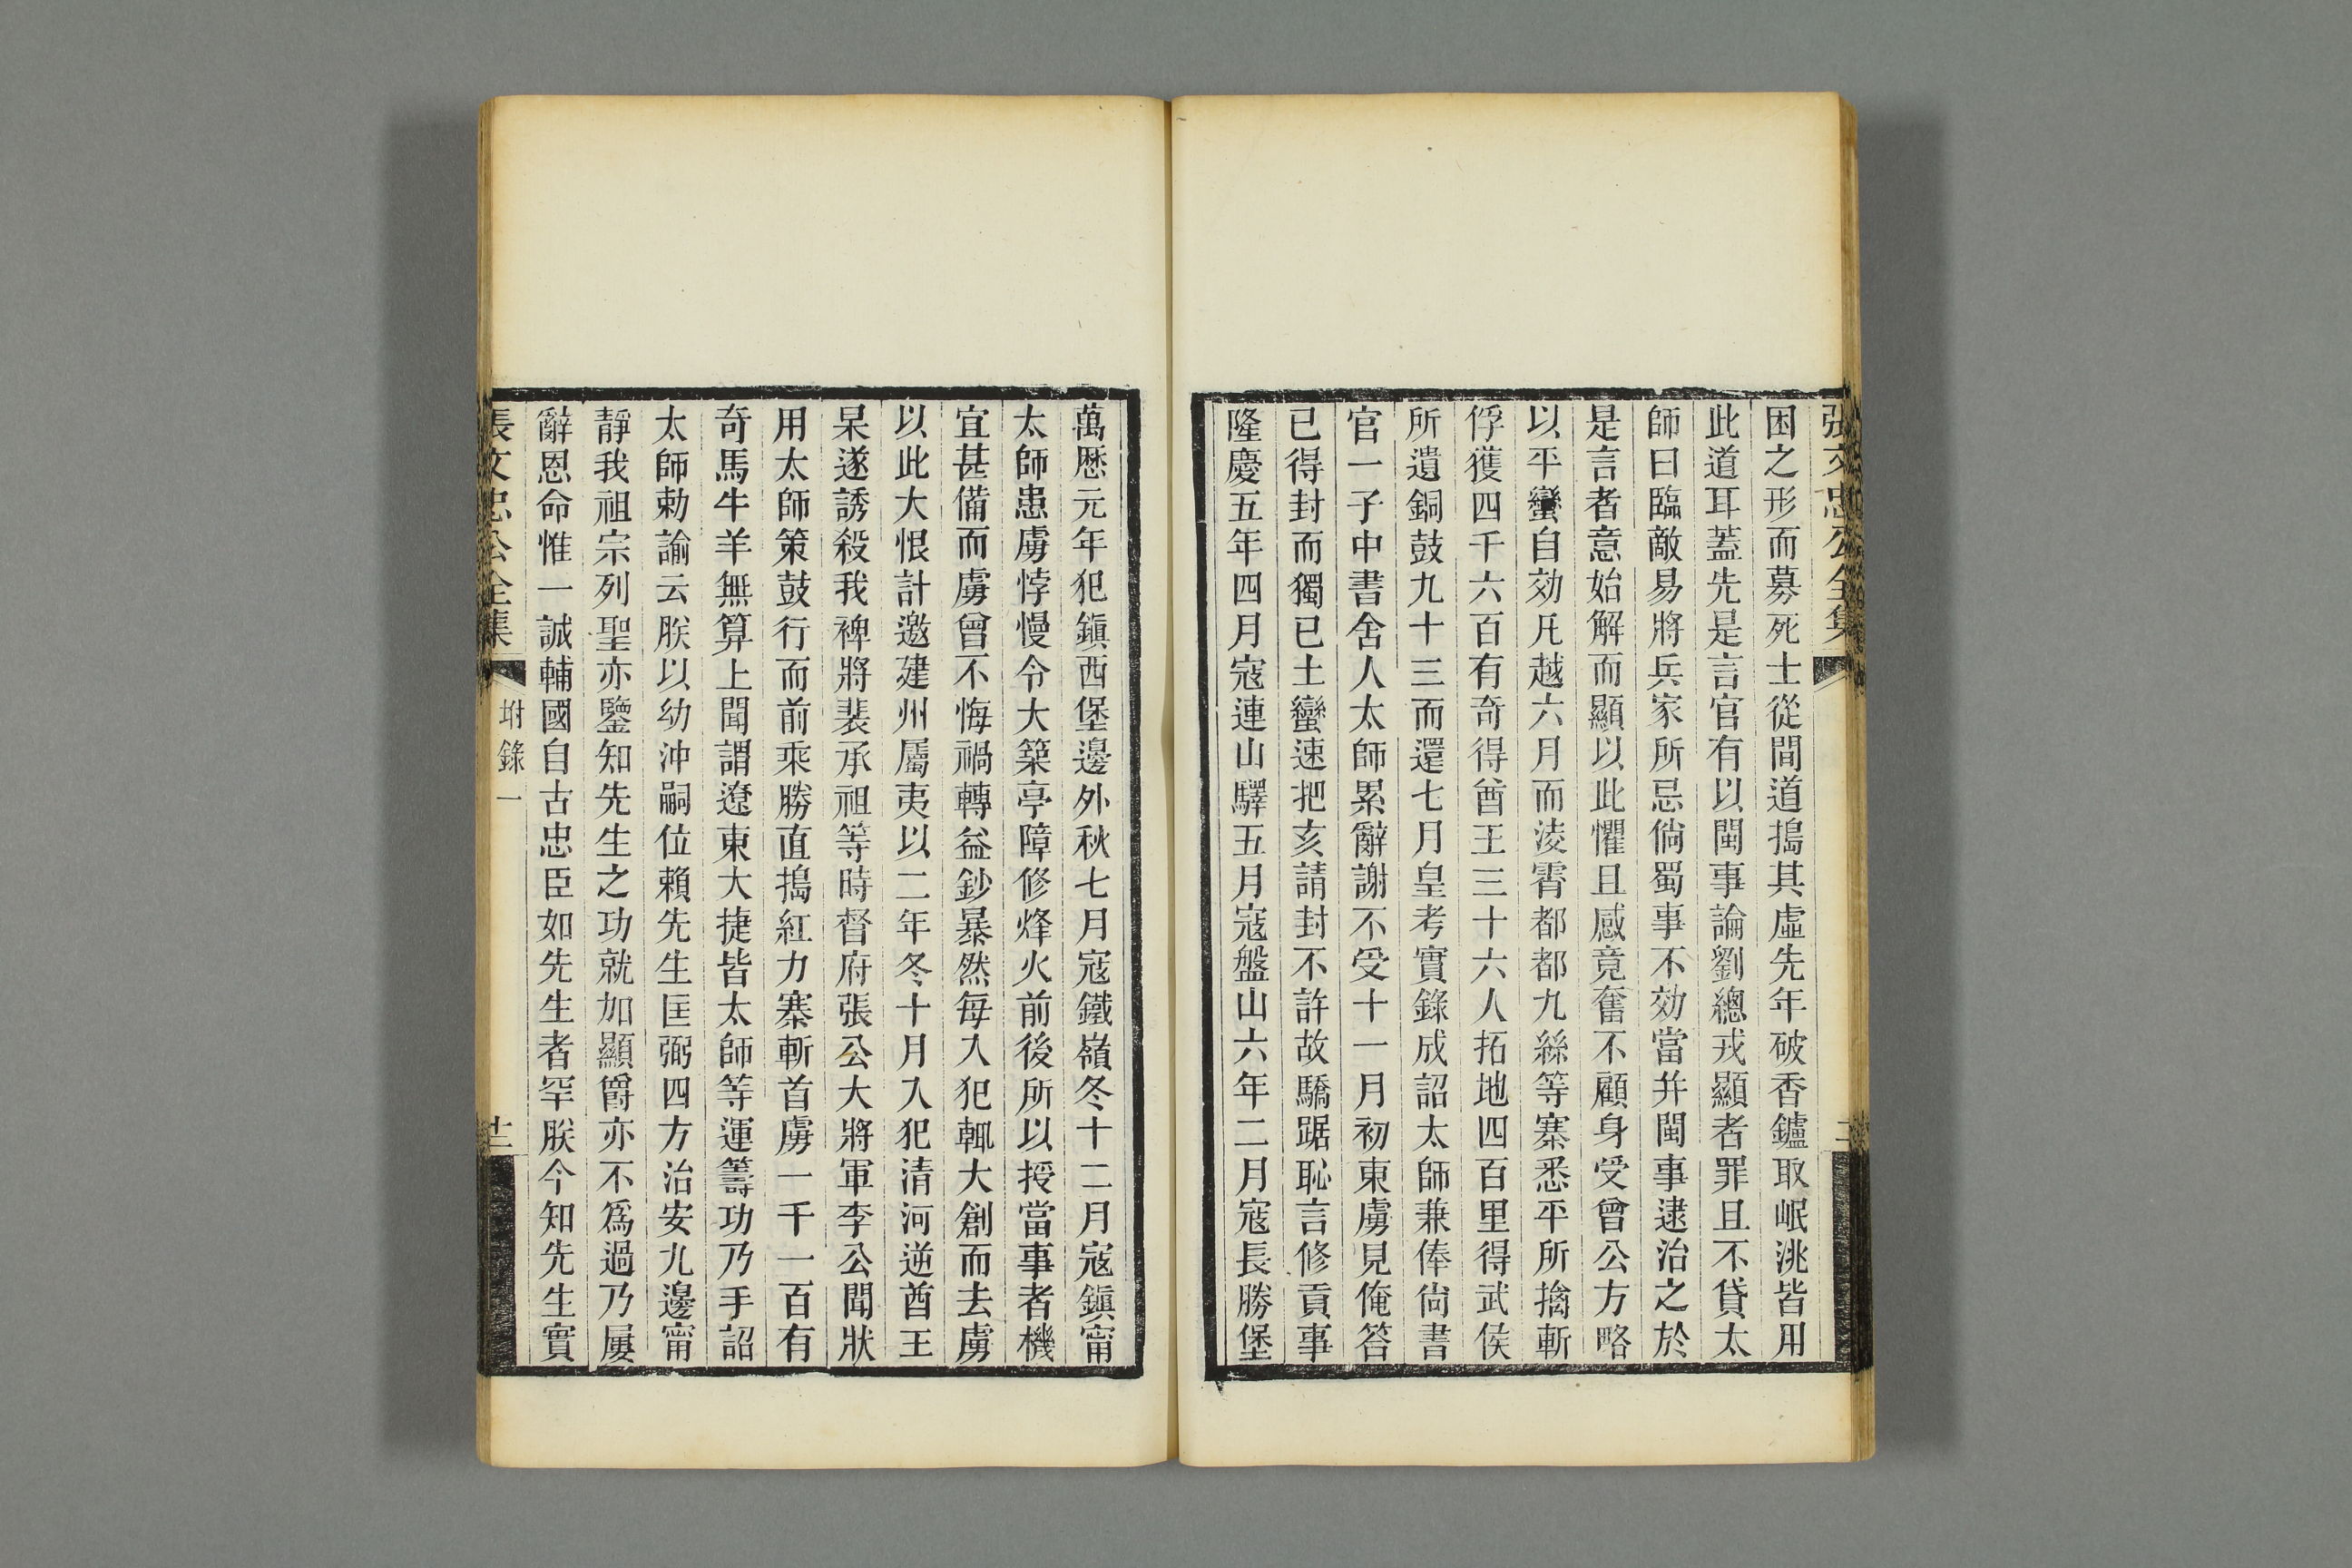 張文忠公全集
困之形而募死士從間道搗其虛先年破香鑪取岷洮皆用
此道耳蓋先是言官有以閩事論劉總戎顯者罪且不貸太
師曰臨敵易將兵家所忌倘蜀事不効當并閩事逮治之於
是言者意始解而顯以此懼且感竟奮不顧身受曾公方略
以平蠻自効凡越六月而淩霄都都九絲等寨悉平所擒斬
俘獲四千六百有奇得酋王三十六人拓地四百里得武侯
所遺銅鼓九十三而還七月皇考實錄成詔太師兼俸尙書
官一子中書舍人太師累辭謝不受十一月初東虜見俺答
已得封而獨已土蠻速把亥請封不許故驕踞恥言修貢事
隆慶五年四月寇連山驛五月寇盤山六年二月寇長勝堡
萬歷元年犯鎭西堡邊外秋七月寇鐵嶺冬十二月寇鎭甯
太師患虜悖慢令大築亭障修烽火前後所以授當事者機
宜甚備而虜曾不悔禍轉益鈔暴然每入犯輒大創而去虜
以此大恨計邀建州屬夷以二年冬十月入犯清河逆酋王
杲遂誘殺我裨將裴承祖等時督府張公大將軍李公聞狀
用太師策鼓行而前乘勝直搗紅力寨斬首虜一千一百有
奇馬牛羊無算上聞謂遼東大捷皆太師等運籌功乃手詔
太師勅諭云朕以幼沖嗣位賴先生匡弼四方治安九邊甯
靜我祖宗列聖亦鑒知先生之功就加顯爵亦不爲過乃屢
辭恩命惟一誠輔國自古忠臣如先生者罕朕今知先生實
張文忠公全集
坿錄一